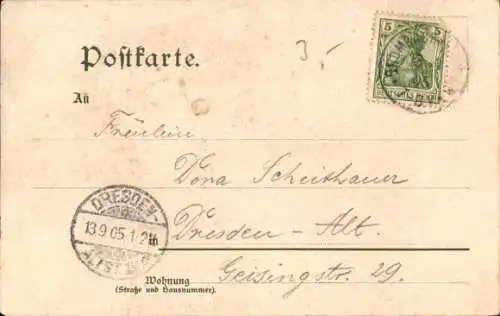 Postkarte.
3,-
5
5
An
Fräulein
Dora Scheithauer
DRESDEN-
13.9.05.1-2N
ALTST.
Dresden - Alt.
Geisingstr. 29.
Wohnung
(Straße und Hausnummer).